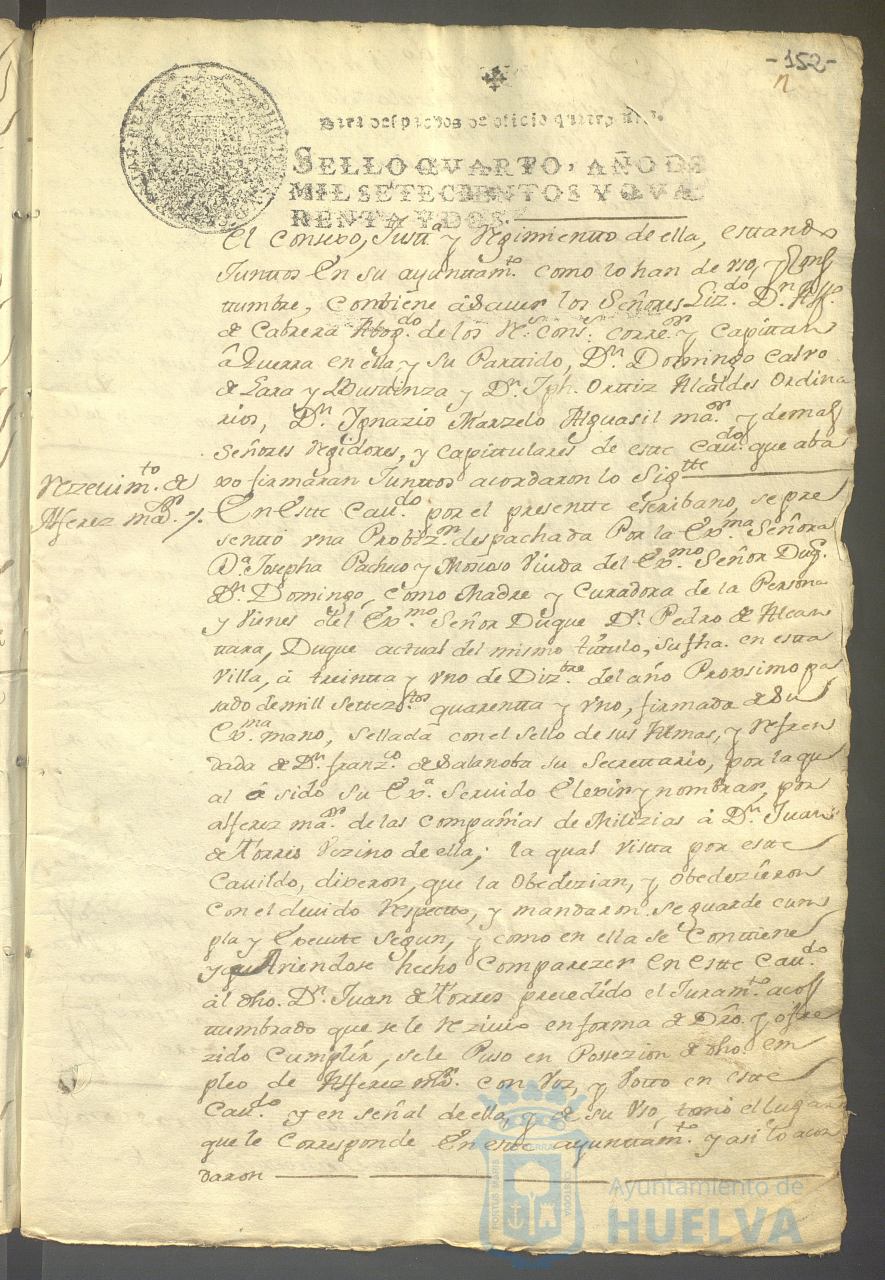 -152-
Para despachos de oficio quatro mrs.
SELLO QVARTO, AÑO DE
MIL SETECIENTOS Y QVA
RENTA Y DOS.
El Consexo, Justt.ª y Rgimientto de ella, esttando
Junttos En su ayunttam.to como lo han de vso, y Cos
tumbre, Combiene â Sauer los Señores Liz.do D.n
de Cabrera Abog.do de los R.s Cons.s Corre.or y Capittan
â Guerra en ella, y su Parttido, D.n Domingo Calvo
de Lara y D.n Jph. Orttiz Alcaldes Ordina
rios, D.n Ygnazio Marzelo Alguasil ma.or y demas
Señores Rgidores, y Capittulares de estte Cau.do que aba
xo firmaran Junttos acordaron lo Sig.tte
Rezeuim.to de
Alferez ma.or /.
En Estte Cau.do por el presentte escribano, se pre
sentó vna Probiz.on despachada Por la Ex.ma Señora
D.ª Josepha Pacheco y Moscoso Viuda del Ex.mo Señor Duq.e
D.n Domingo, como Madre y Curadora de la Persona
y Vienes del Ex.mo Señor Duque D.n Pedro de Alcan
tara, Duque actual del mismo títtulo, su fha. en estta
Villa, â treintta y vno de Diz.bre del año Proximo pa
sado de mill settez.tos quarentta y vno, firmada de Su
Ex.ma mano, sellada con el sello de sus Armas, y Refren
dada de D.n franz.co de Salanoba su Secrettario, por la qu
al â sido su Ex.ª Seruido Elexir y nombrar, por
alferez ma.or de las Compañias de Milizias â D.n Juan
de Torres Vezino de ella; la qual Vistta por estte
Cauildo, dixeron, que la Obedezian, y obedezieron
con el deuido Respecto, y mandaron se guarde cum
pla y Execute Segun, y como en ella se Conttiene
y hauiendose hecho Comparezer En Estte Cau.do
âl dho. D.n Juan de Torres precedido el Juram.to acos
tumbrado que se le Reziuio en forma de Dro. y ofre
zido Cumplir, se le Puso en Possezion de dho. em
pleo de Alferez m.or con Voz, y Votto en estte
Cau.do y en señal de ella, y de su vso, tomó el lugar
que le Corresponde En este ayunttam.to y asi lo acor
daron
PORTUS MARIS
TERRAE
CUSTODIA
Ayuntamiento de
HUELVA